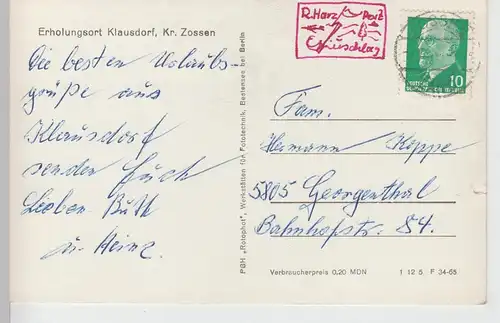 Erholungsort Klausdorf, Kr. Zossen
Die besten Urlaubs-
grüße aus
Klausdorf
senden Euch
Lieben Ruth
u. Heinz.
PGH „Rotophot", Werkstätten für Fototechnik, Bestensee bei Berlin
R. Harz Post
10
Fam.
Hermann Koppe
5805 Georgenthal
Bahnhofstr. 84.
Verbraucherpreis 0,20 MDN
1 12 5, F 34-65